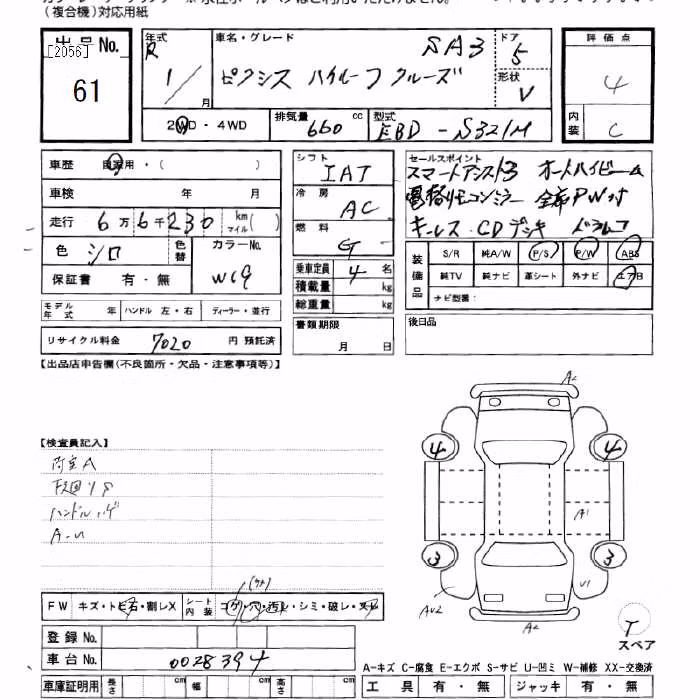 (複合機)対応用紙
出品No.
[2056]
61
年式
R
1/
月
車名・グレード
SA3
ピクシス バン ハイルーフ クルーズ
ドア
5
形状
V
評価点
4
内装
C
2WD・4WD
排気量
660
cc
型式
EBD-S321M
車歴 自家用・( )
車検 年 月
走行 6万6千230 km マイル( )
色 シロ
色替
カラーNo.
W19
保証書 有・無
シフト
IAT
冷房
AC
燃料
G
乗車定員 4 名
積載量 kg
総重量 kg
書類期限
月 日
セールスポイント
スマートアシスト3 オートハイビーム
電格リモコンミラー 全席PW付
キーレス CDデッキ ドラレコ
装備品
S/R 純A/W P/S P/W ABS
純TV 純ナビ 革シート 外ナビ エアB
ナビ型番:
モデル年式 年 ハンドル 左・右 ディーラー・並行
リサイクル料金 7020 円 預託済
後日品
【出品店申告欄(不良箇所・欠品・注意事項等)】
【検査員記入】
内室A
下廻リS
ハンドルハゲ
A-U
A2
4
4
A1
3
3
AU2
U1
A2
T
スペア
FW キズ・トビ石・割レX
シート内装
コゲ・穴・汚レ・シミ・破レ・スレ
登録No.
車台No. 0028394
車庫証明用 長さ cm 幅 cm 高さ cm
A-キズ C-腐食 E-エクボ S-サビ U-凹ミ W-補修 XX-交換済
工具 有・無 ジャッキ 有・無